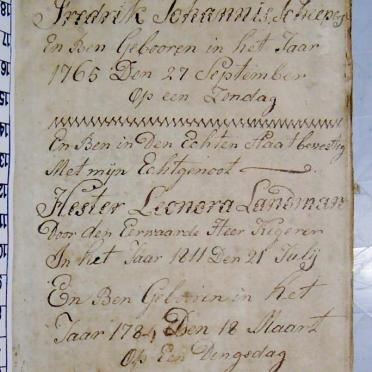 Fredrik Johannis Scheepers
En Ben Gebooren in het Jaar
1765 Den 27 September
Op een Zondag
En Ben in Den Echten Staat bevestig
Met mijn Echtgenoot
Hester Leonora Landman
Door den Eerwaarde Heer
In het Jaar 1811 Den 21 Julij
En Ben Gebooren in het
Jaar 1784 Den 18 Maart
Op Een Dengsdag